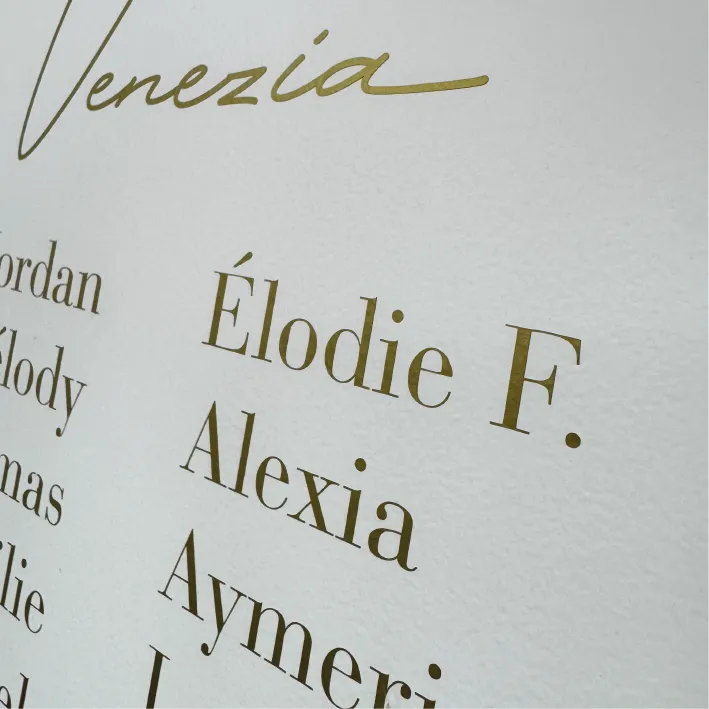 Venezia
ordan
élody
mas
ilie
el
Élodie F.
Alexia
Aymeri